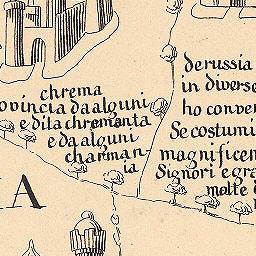 chrema
ovincia da alguni
e dita chremanta
e da alguni
charman
ia
de russia
in diverse
ho conver
Se costumi
magnificen
Signori e gra
molte d
A